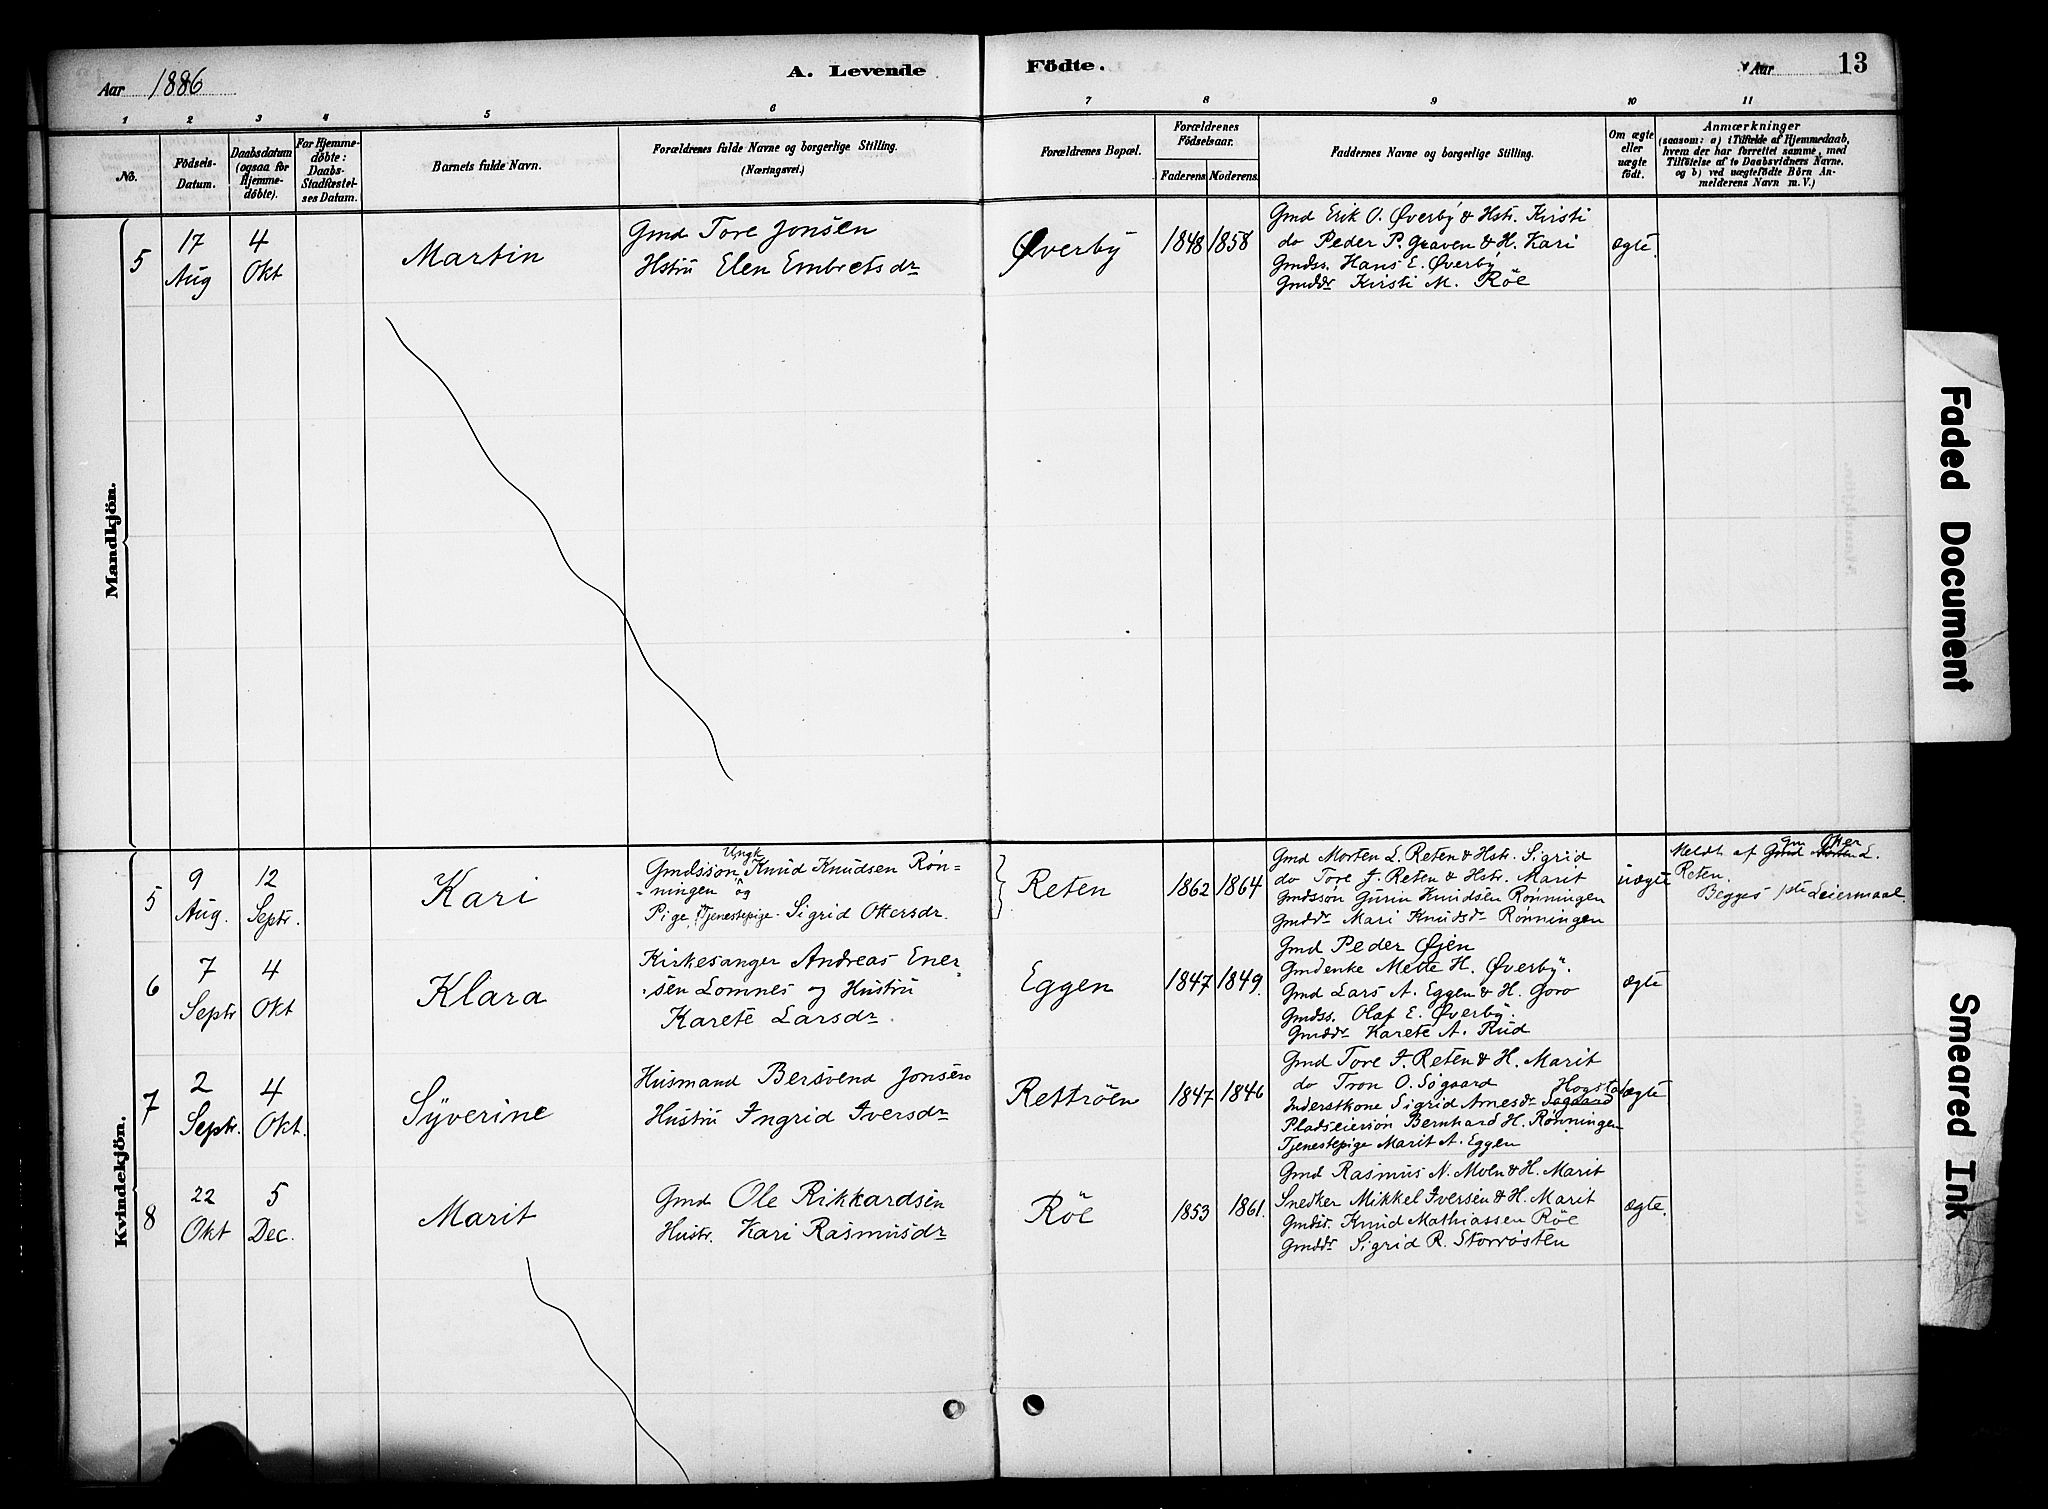 Aar 1886
A. Levende Födte.
Aar
13
1 2 3 4 5 6 7 8 9 10 11
No.
Födsels-
Datum.
Daabsdatum
(ogsaa for
Hjemme-
döbte).
For Hjemme-
döbte:
Daabs-
Stadfæstel-
ses Datum.
Barnets fulde Navn.
Forældrenes fulde Navne og borgerlige Stilling.
(Næringsvei.)
Forældrenes Bopæl.
Forældrenes
Födselsaar.
Faderens. Moderens.
Faddernes Navne og borgerlige Stilling.
Om ægte
eller
uægte
födt.
Anmærkninger
(saasom: a) i Tilfælde af Hjemmedaab,
hvem der har forrettet samme, med
Tilföielse af to Daabsvidners Navne.
og b) ved uægtefödte Börn An-
melderens Navn m. V.)
Mandkjön.
5
17
Aug
4
Okt
Martin
Gmd Tore Jonsen
Hstru Elen Embretsdr
Øverby
1848 1858
Gmd Erik O. Øverby & Hstr. Kirsti
do Peder P. Graven & H. Kari
Gmdss. Hans E. Øverby
Gmddr Kirsti M. Röe
ægte.
Kvindekjön.
5
9
Aug.
12
Septr.
Kari
Ungk.
Gmdssøn Knud Knudsen Røn-
ningen og
Pige, Tjenestepige Sigrid Ottersdr.
Reten
1862 1864
Gmd Morten L. Reten & Hstr. Sigrid
do Tore J. Reten & Hstr. Marit
Gmdssøn Gurin Knudsen Rønningen
Gmddr Mari Knudsdr Rønningen
uægte
Meldt af Gmd Otter L.
Reten.
Begges 1ste Leiermaal.
6
7
Septr
4
Okt
Klara
Kirkesanger Andreas Ener-
sen Lomnes og Hustru
Karete Larsdr.
Eggen
1847 1849.
Gmd Peder Øjen
Gmdenke Mette H. Øverby.
Gmd Lars A. Eggen & H. Goro
Gmdss. Olaf E. Øverby.
Gmddr Karete A. Rud
ægte
7
2
Septr.
4
Okt.
Syverine
Husmand Bersvend Jonsen
Hustru Ingrid Iversdr
Rettröen
1847 1846
Gmd Tore J. Reten & H. Marit
do Tron O. Søgaard
Inderstkone Sigrid Arnesdr Søgaard
Pladseiersøn Bernhard H. Rønningen
Tjenestepige Marit A. Eggen
ægte
8
22
Okt
5
Dec.
Marit
Gmd Ole Rikkardsen
Hustr. Kari Rasmusdr
Röe
1853 1861.
Gmd Rasmus N. Moen & H. Marit
Snedker Mikkel Iversen & H. Marit
Gmdss. Knud Mathiassen Röe
Gmddr Sigrid R. Storrösten
ægte.
Faded Document
Smeared Ink